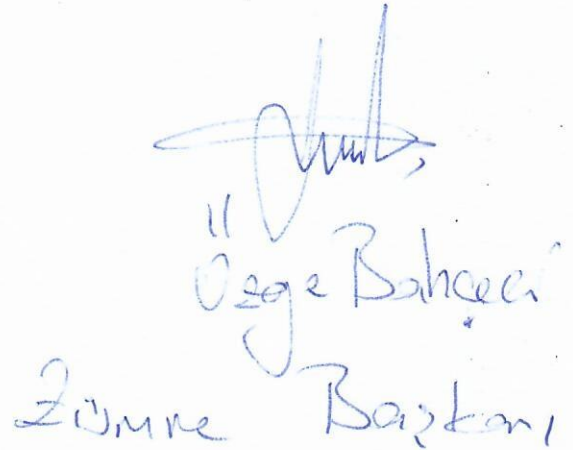 Özge Bahçeci
Zümre Başkanı